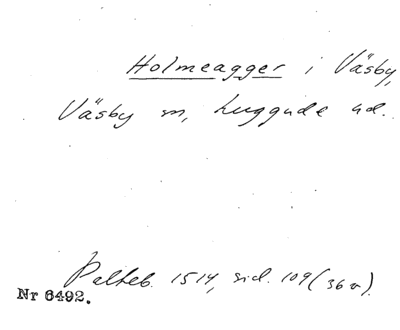 Holmeagger i Väsby,
Väsby sn, Luggude hd.
Palteb. 1514, sid. 109 (36v).
Nr 6492.